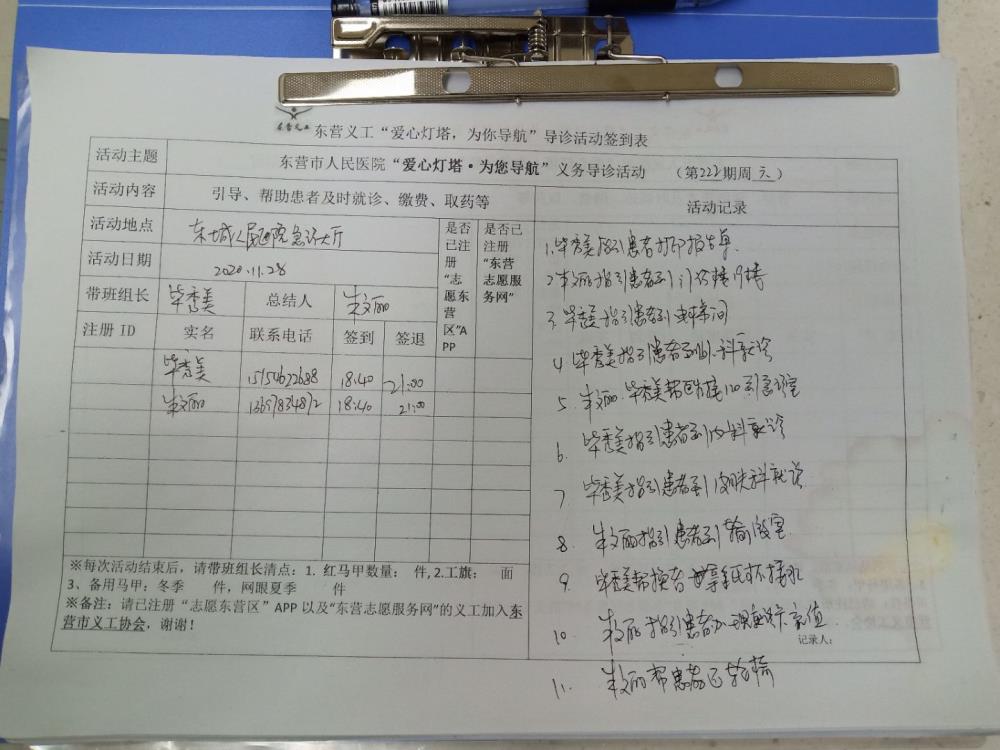 东营义工
东营义工“爱心灯塔，为你导航”导诊活动签到表
活动主题 东营市人民医院“爱心灯塔·为您导航”义务导诊活动 （第222期周六）
活动内容 引导、帮助患者及时就诊、缴费、取药等 活动记录
活动地点 东城人民医院急诊大厅
活动日期 2020.11.28
是否已注册“志愿东营区”APP
是否已注册“东营志愿服务网”
带班组长 毕秀美 总结人
注册 ID 实名 联系电话 签到 签退
毕秀美 15154622688 18:40 21:00
18:40 21:00
1.毕秀美指引患者打印报告单
2 指引患者到门诊楼
3 毕秀美指引患者到
4 毕秀美指引患者到外科就诊
5 毕秀美帮 120到急诊室
6. 毕秀美指引患者到内科就诊
7 毕秀美指引患者到皮肤科就诊
8. 指引患者到输液室
9. 毕秀美帮患者拿纸杯接水
10 指引患者 充值
11. 帮患者还轮椅
记录人：
※每次活动结束后，请带班组长清点：1. 红马甲数量： 件，2.工旗： 面
3、备用马甲：冬季 件，网眼夏季 件
※备注：请已注册“志愿东营区”APP 以及“东营志愿服务网”的义工加入东
营市义工协会，谢谢！